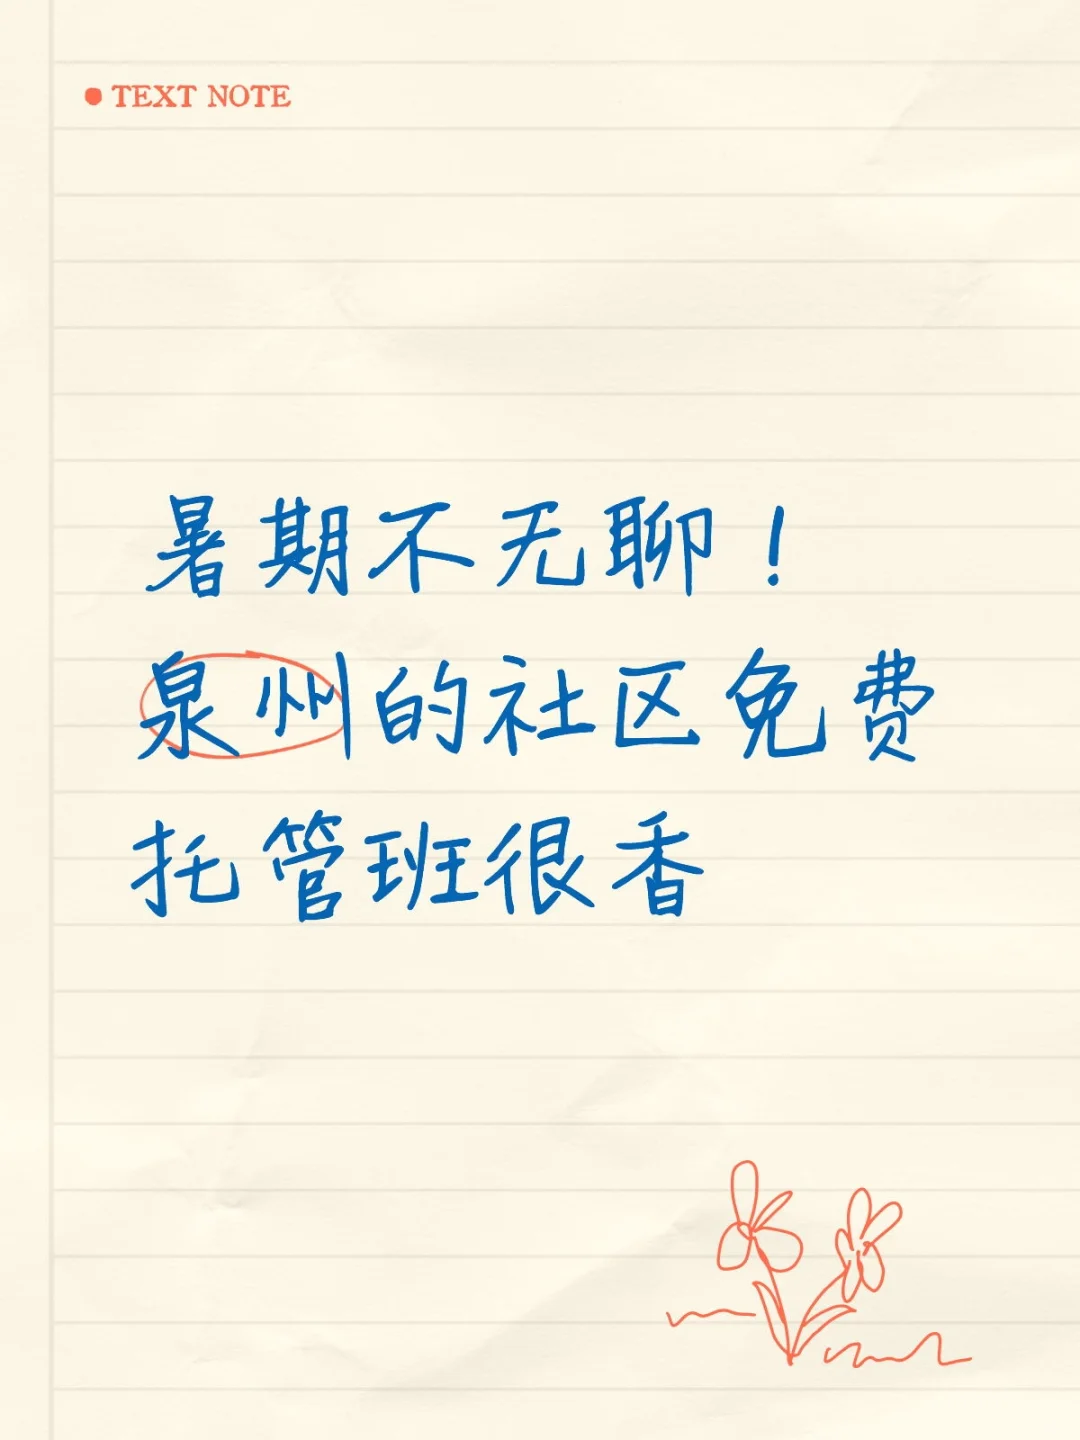 TEXT NOTE
暑期不无聊！
泉州的社区免费
托管班很香